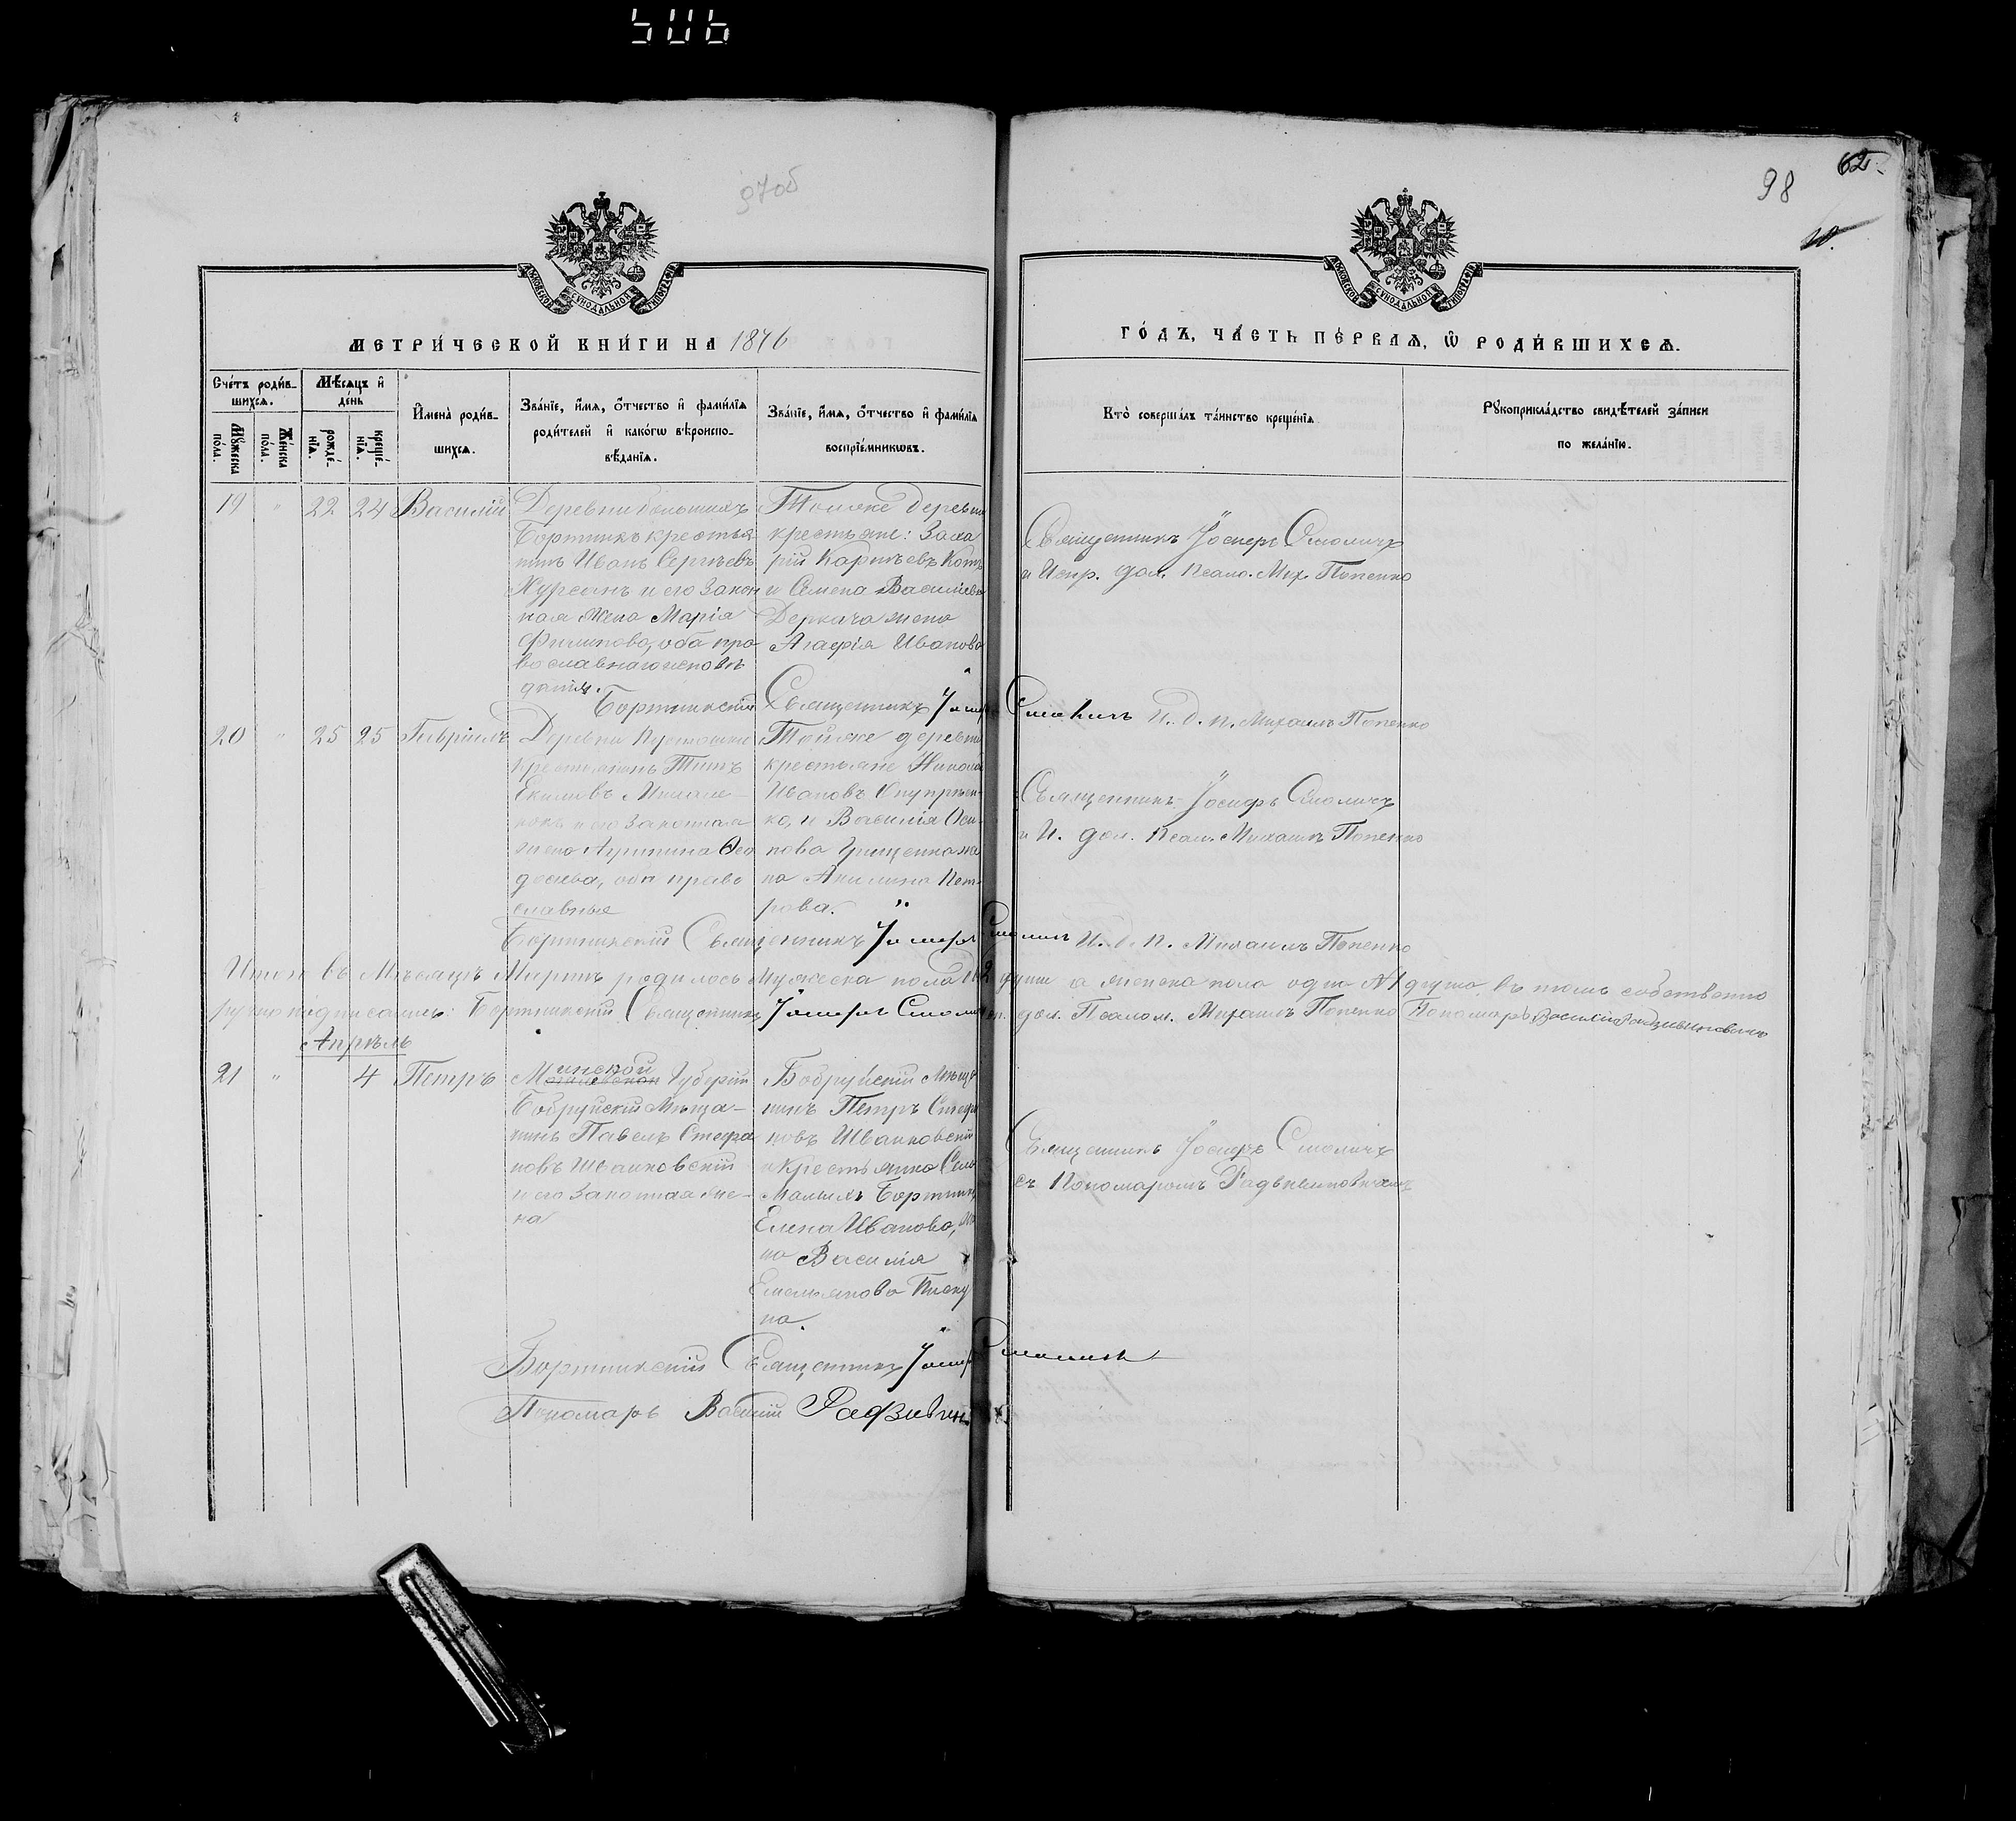 506
97об
98
62.
10.
МОСКОВСКОЙ СѴНОДАЛЬНОЙ ТИПОГРАФІИ
МОСКОВСКОЙ СѴНОДАЛЬНОЙ ТИПОГРАФІИ
МЕТРИ́ЧЕСКОЙ КНИ́ГИ НА 1876
ГО́ДЪ, ЧА́СТЬ ПЕ́РВАѦ, Ѡ РОДИ́ВШИХСѦ.
Сче́тъ роди́в-
шихсѧ.
Мꙋ́жеска по́ла.
Же́нска по́ла.
Мѣ́сѧцъ и҆ де́нь
рожде́-нїѧ.
креще́-нїѧ.
И҆мена̀ роди́в-
шихсѧ.
Зва́нїе, и҆́мѧ, ѻ҆́тчество и҆ фами́лїѧ
роди́телей и҆ како́гѡ вѣроиспо-
вѣ́данїѧ.
Зва́нїе, и҆́мѧ, ѻ҆́тчество и҆ фами́лїѧ
воспрїе́мникѡвъ.
Кто̀ соверша́лъ та́инство креще́нїѧ.
Рꙋкоприкла́дство свидѣ́телей за́писи
по жела́нїю.
19 " 22 24 Василій
Деревни Большихъ
Бортникъ крестья
нинъ Иванъ Сергѣевъ
Хурсанъ и его закон
ная жена Марія
Филипова, оба пра
вославнаго исповѣ
данія.
Тойже деревни
крестьяне: Заха
рій Карпѣевъ Котъ
и Семена Василіева
Деркача жена
Агафія Иванова
Священникъ Іосифъ Смоличъ
и Испр. дол. Псало. Мих. Попенко
Бортникскій Священникъ Іосифъ Смоличъ И. д. п. Михаилъ Попенко
20 " 25 25 Гавріилъ
Деревни
крестьянинъ Титъ
и его законная
жена Агрипина Ѳео
досіева, оба право
славные
Тойже деревни
крестьяне Никола
Ивановъ
ко, и Василія Оси-
пова Грищенка же
на Акилина Пет-
рова.
Священникъ Іосифъ Смоличъ
и И. дол. Псал. Михаилъ Попенко
Бортникскій Священникъ Іосифъ Смоличъ И. д. п. Михаилъ Попенко
Итого въ Мѣсяцѣ Мартѣ родилось мужеска пола 2 души а женска пола одна №1 душа, въ томъ собственно
ручно подписались: Бортникскій Священникъ Іосифъ Смоличъ дол. Псалом. Михаилъ Попенко Пономарь Василій
Апрѣль
21 " 4 Петръ
Минской Губерніи
Бобруйскій мѣща-
нинъ Павелъ Стефа
новъ Шванковскій
и его законная же-
на
Бобруйскій мѣща
нинъ Петръ Стефа
новъ Шванковскій
и крестьянка Села
Малыхъ Бортникъ
Елена Иванова, же
на Василія
Емельянова Писку
на.
Священникъ Іосифъ Смоличъ
съ Пономаромъ
Бортникскій Священникъ Іосифъ Смоличъ
Пономарь Василій